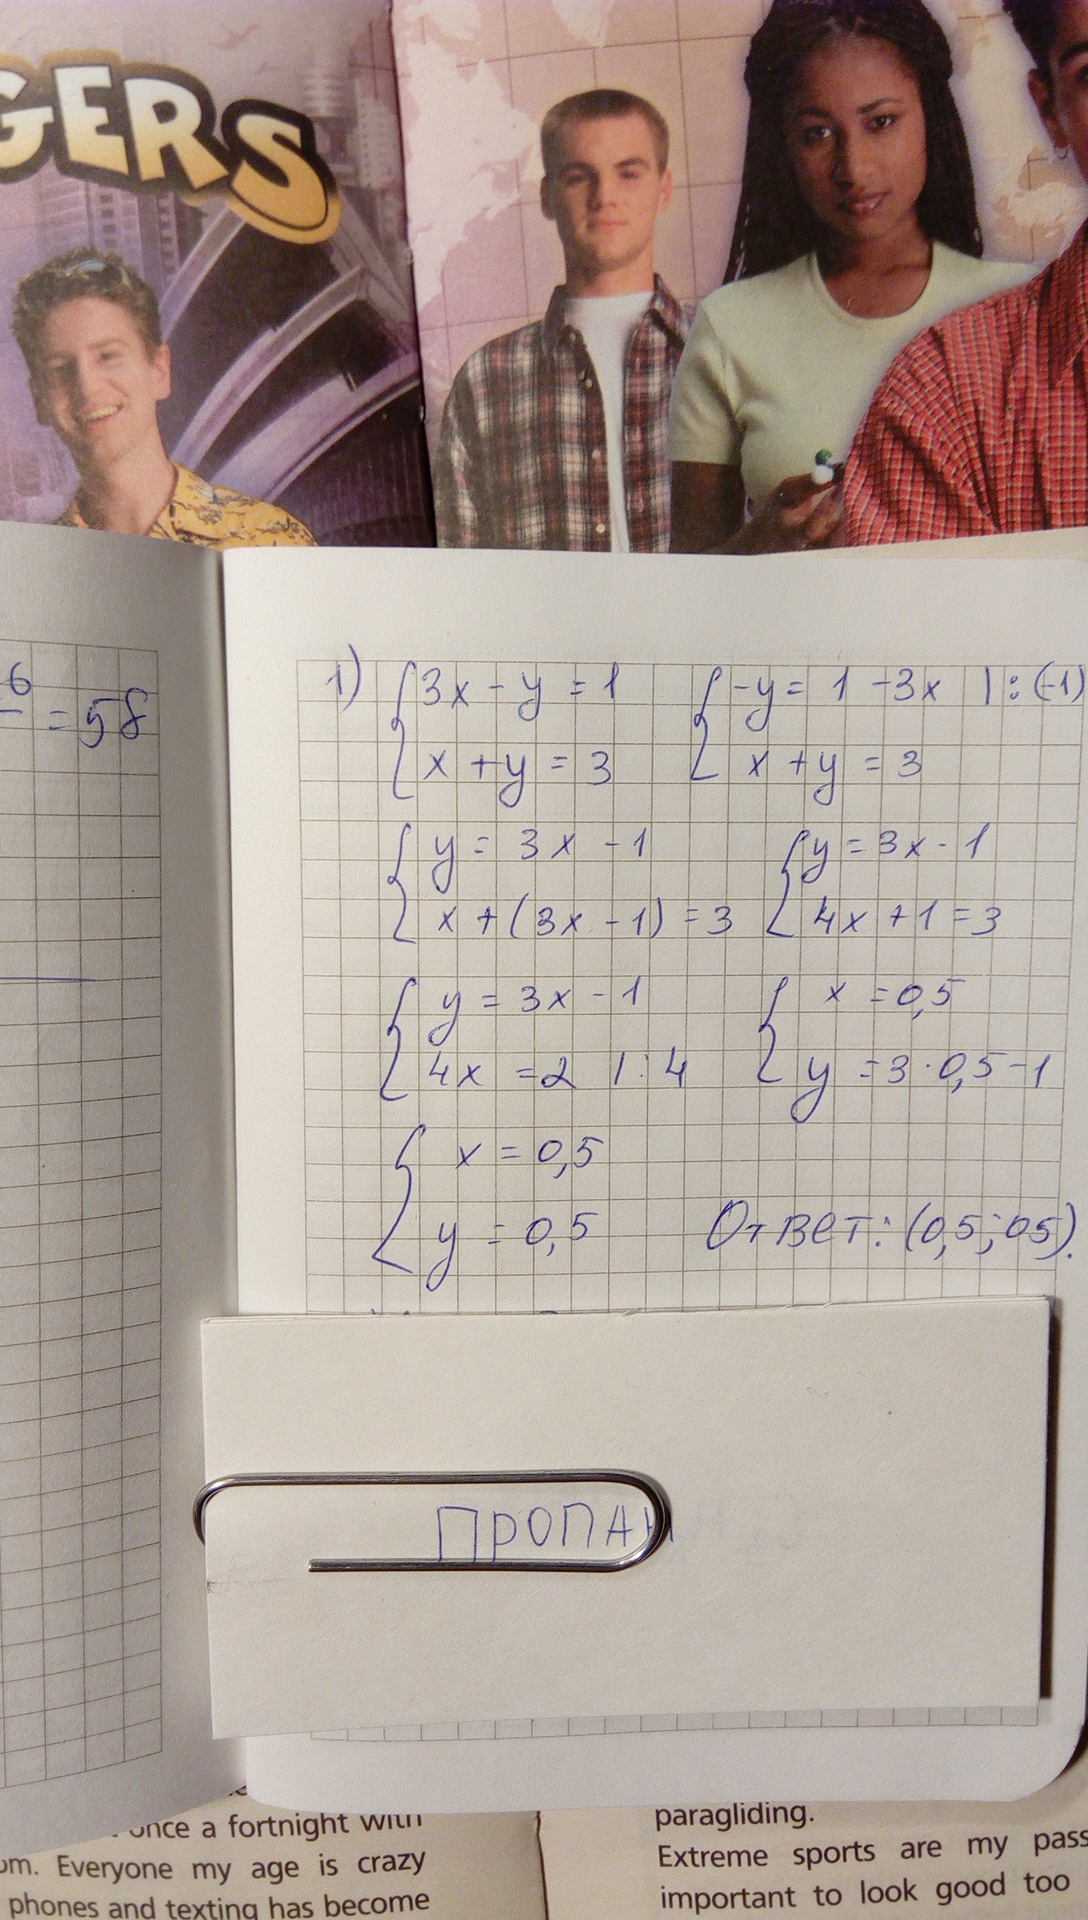 GERS
6
= 58
1) { 3x - y = 1 { -y = 1 - 3x | : (-1)
x + y = 3 x + y = 3
{ y = 3x - 1 { y = 3x - 1
x + (3x - 1) = 3 4x + 1 = 3
{ y = 3x - 1 { x = 0,5
4x = 2 | : 4 y = 3 · 0,5 - 1
{ x = 0,5
y = 0,5 Ответ: (0,5; 05).
ПРОПАН
once a fortnight with
om. Everyone my age is crazy
phones and texting has become
paragliding.
Extreme sports are my pass
important to look good too